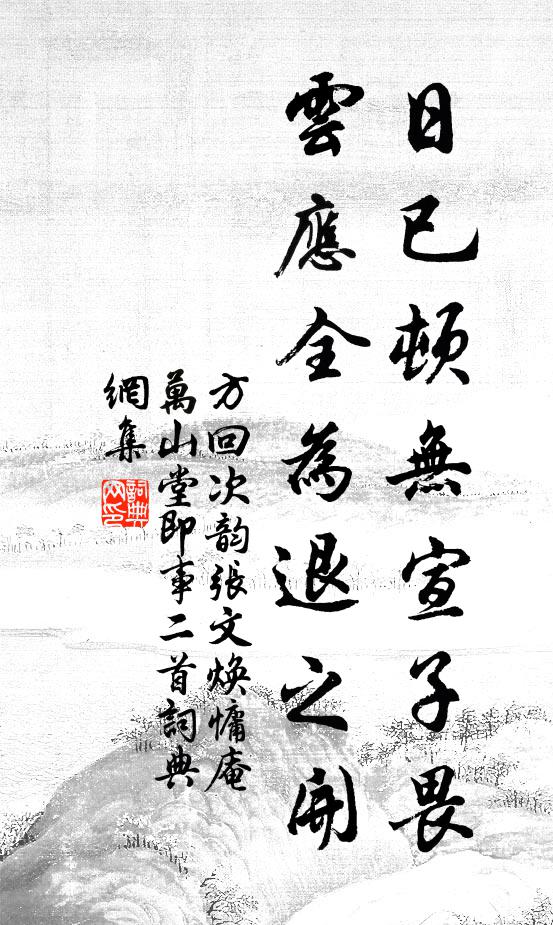 日已頓無宣子畏
雲應全為退之開
方回次韵張文焕慵庵
萬山堂即事二首詞典
網集
詞典網印